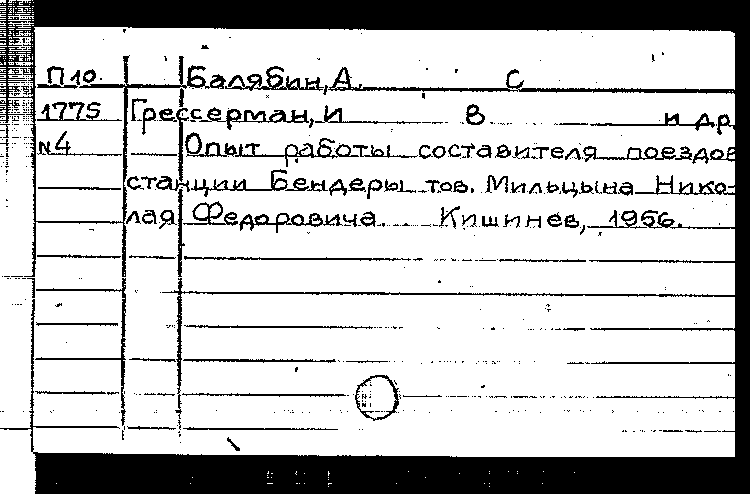 П10 Балябин, А. С
1775 Грессерман, И В и др.
№4 Опыт работы составителя поездов
станции Бендеры тов. Мильцына Нико-
лая Федоровича. Кишинев, 1956.